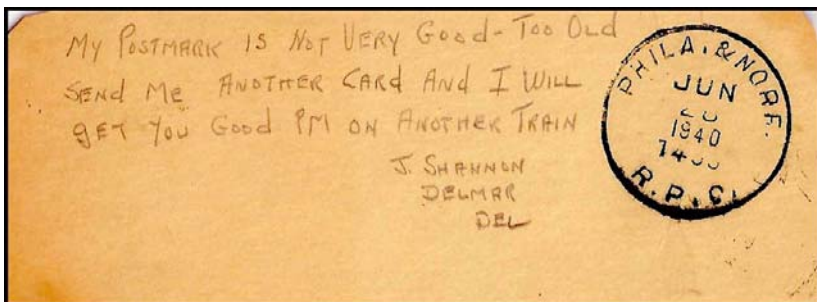 My Postmark is Not Very Good - Too Old
Send Me Another Card And I Will
get You Good PM on Another Train
J. Shannon
Delmar
Del
PHILA. & NORF.
JUN
1940
R.P.O.